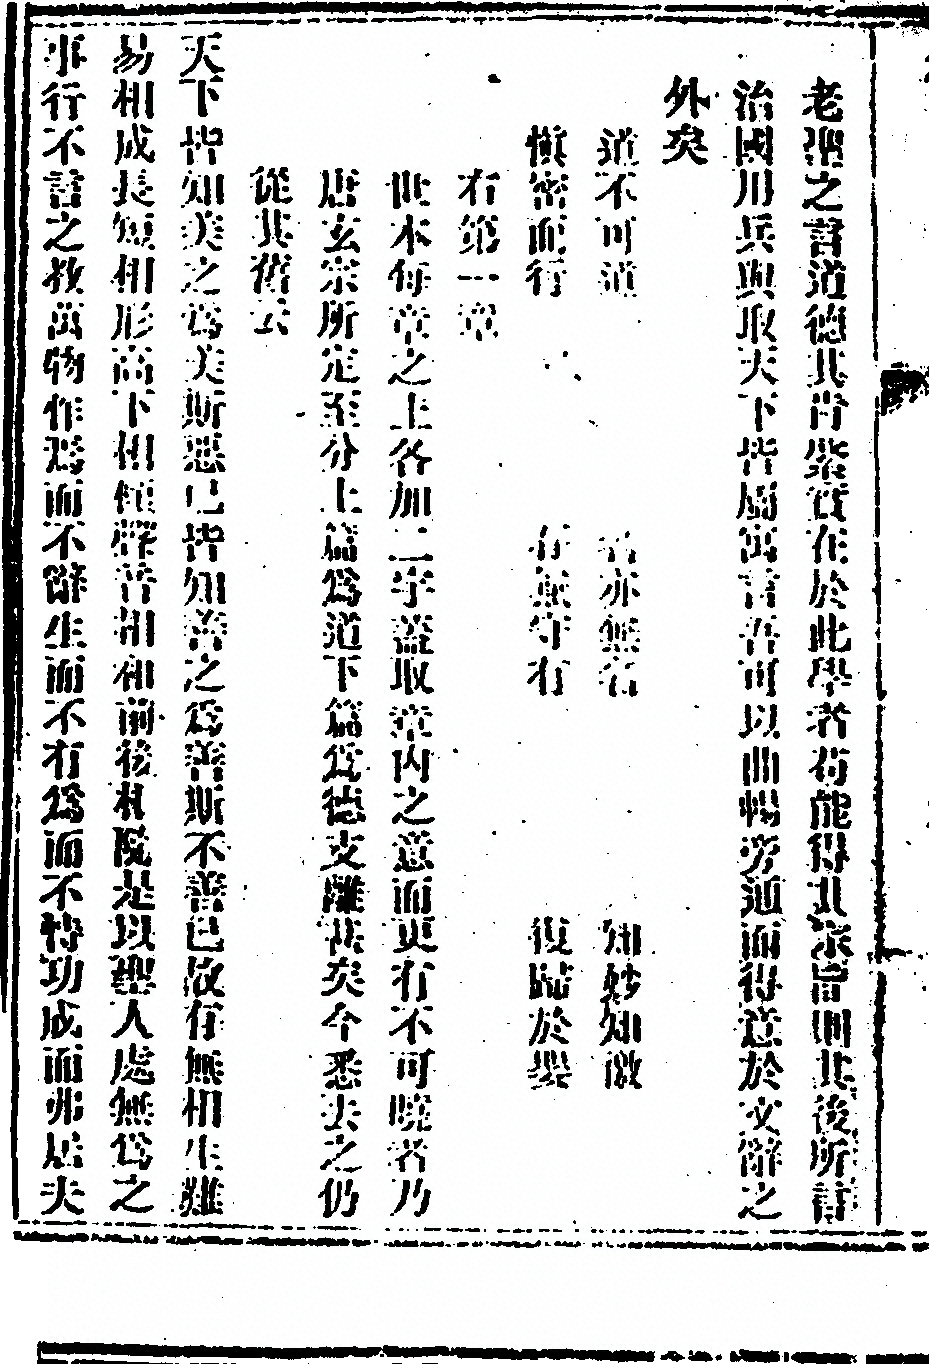 老聖之言道德其肯綮實在於此學者苟能得其宗旨則其後所言
治國用兵與取天下皆屬寓言吾可以曲暢旁通而得意於文辭之
外矣
道不可道 名亦無名 知妙知徼
慎密而行 存無守有 復歸於嬰
右第一章
世本每章之上各加二字蓋取章內之意而更有不可曉者乃
唐玄宗所定至分上篇為道下篇為德支離甚矣今悉去之仍
從其舊云
天下皆知美之為美斯惡已皆知善之為善斯不善已故有無相生難
易相成長短相形高下相傾聲音相和前後相隨是以聖人處無為之
事行不言之教萬物作焉而不辭生而不有為而不恃功成而弗居夫